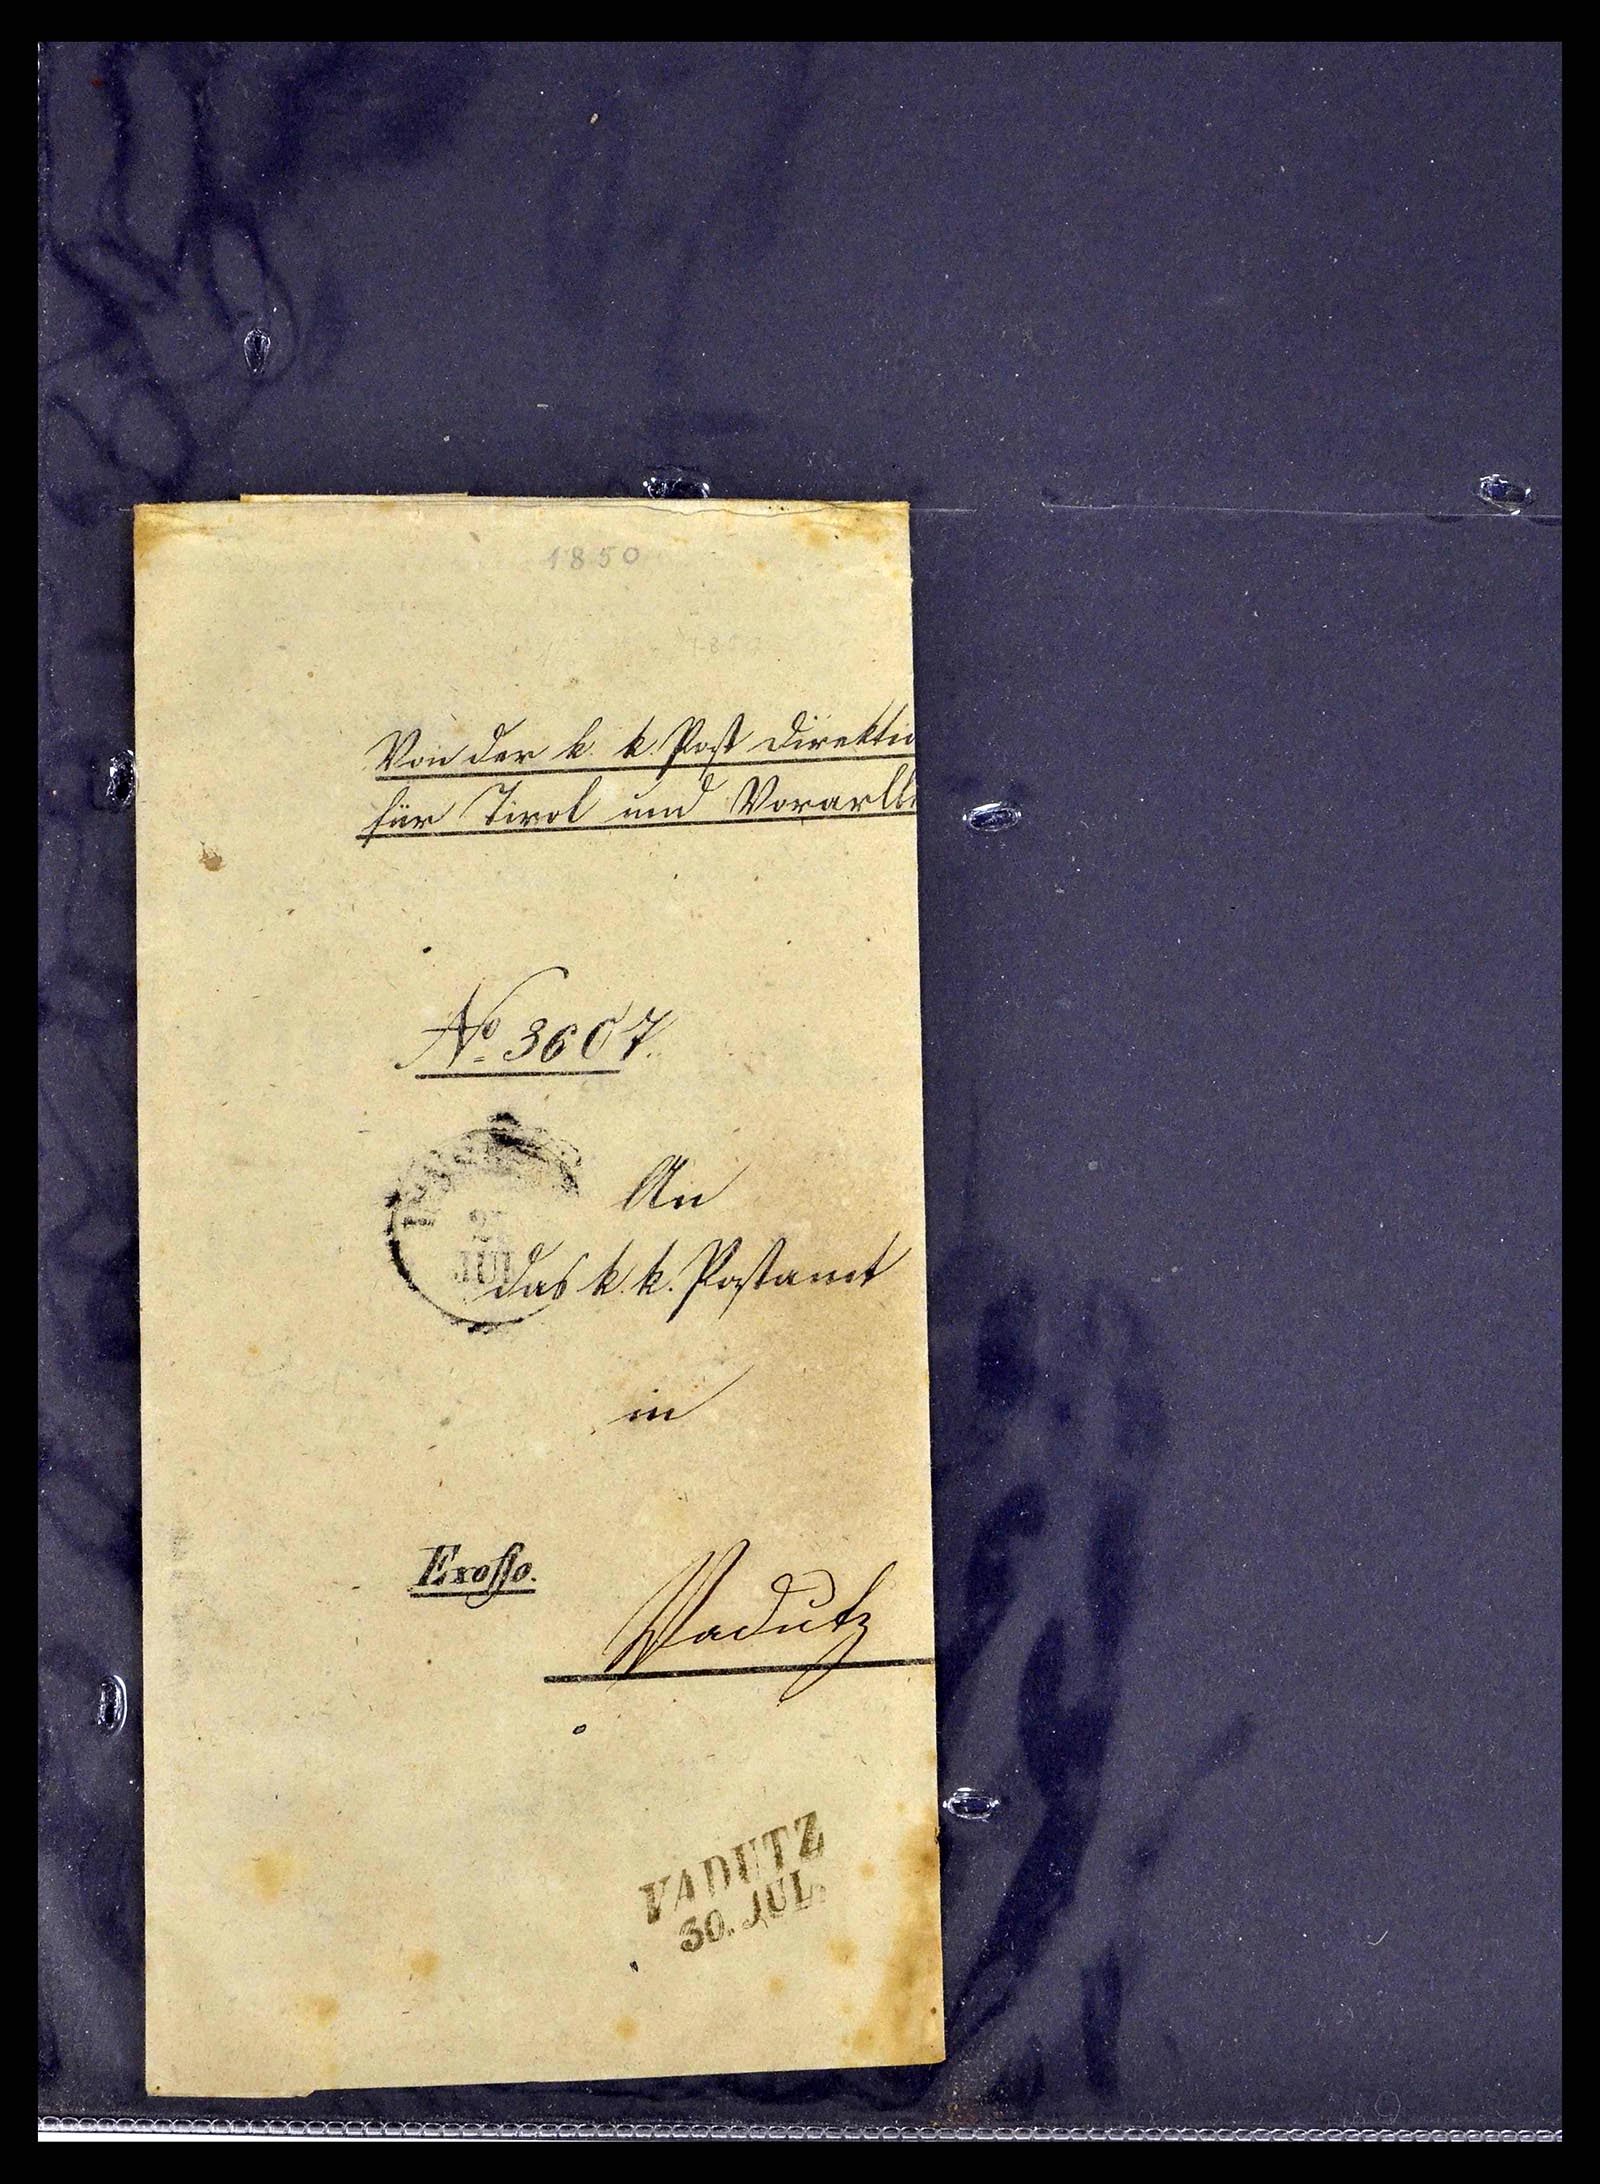 1850
Von der k. k. Post Direktio
für Tirol und Vorarlb
No. 3607.
An
JUL
das k. k. Postamt
in
Exoffo.
Vadutz
VADUTZ
30. JUL.